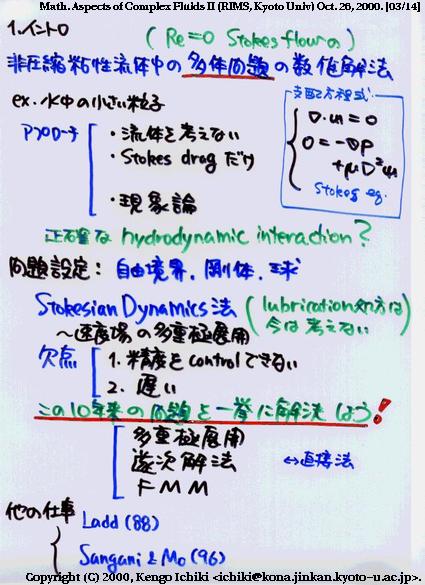 Math. Aspects of Complex Fluids II (RIMS, Kyoto Univ) Oct. 26, 2000. [03/14]
1.イントロ
(Re=0 Stokes flowの)
非圧縮粘性流体中の多体問題の数値解法
ex. 水中の小さい粒子
アプローチ
・流体を考えない
・Stokes drag だけ
・現象論
支配方程式
∇・u = 0
0 = -∇p
+μ∇²u
Stokes eq.
正確な hydrodynamic interaction?
問題設定: 自由境界, 剛体, 球
Stokesian Dynamics 法 (lubrication処方は
今は考えない)
~速度場の多重極展開
欠点
1. 精度を control できない
2. 遅い
この10年来の問題を一挙に解決しよう!
多重極展開
逐次解法 ↔直接法
FMM
他の仕事
Ladd (88)
Sangani & Mo (96)
Copyright (C) 2000, Kengo Ichiki <ichiki@kona.jinkan.kyoto-u.ac.jp>.